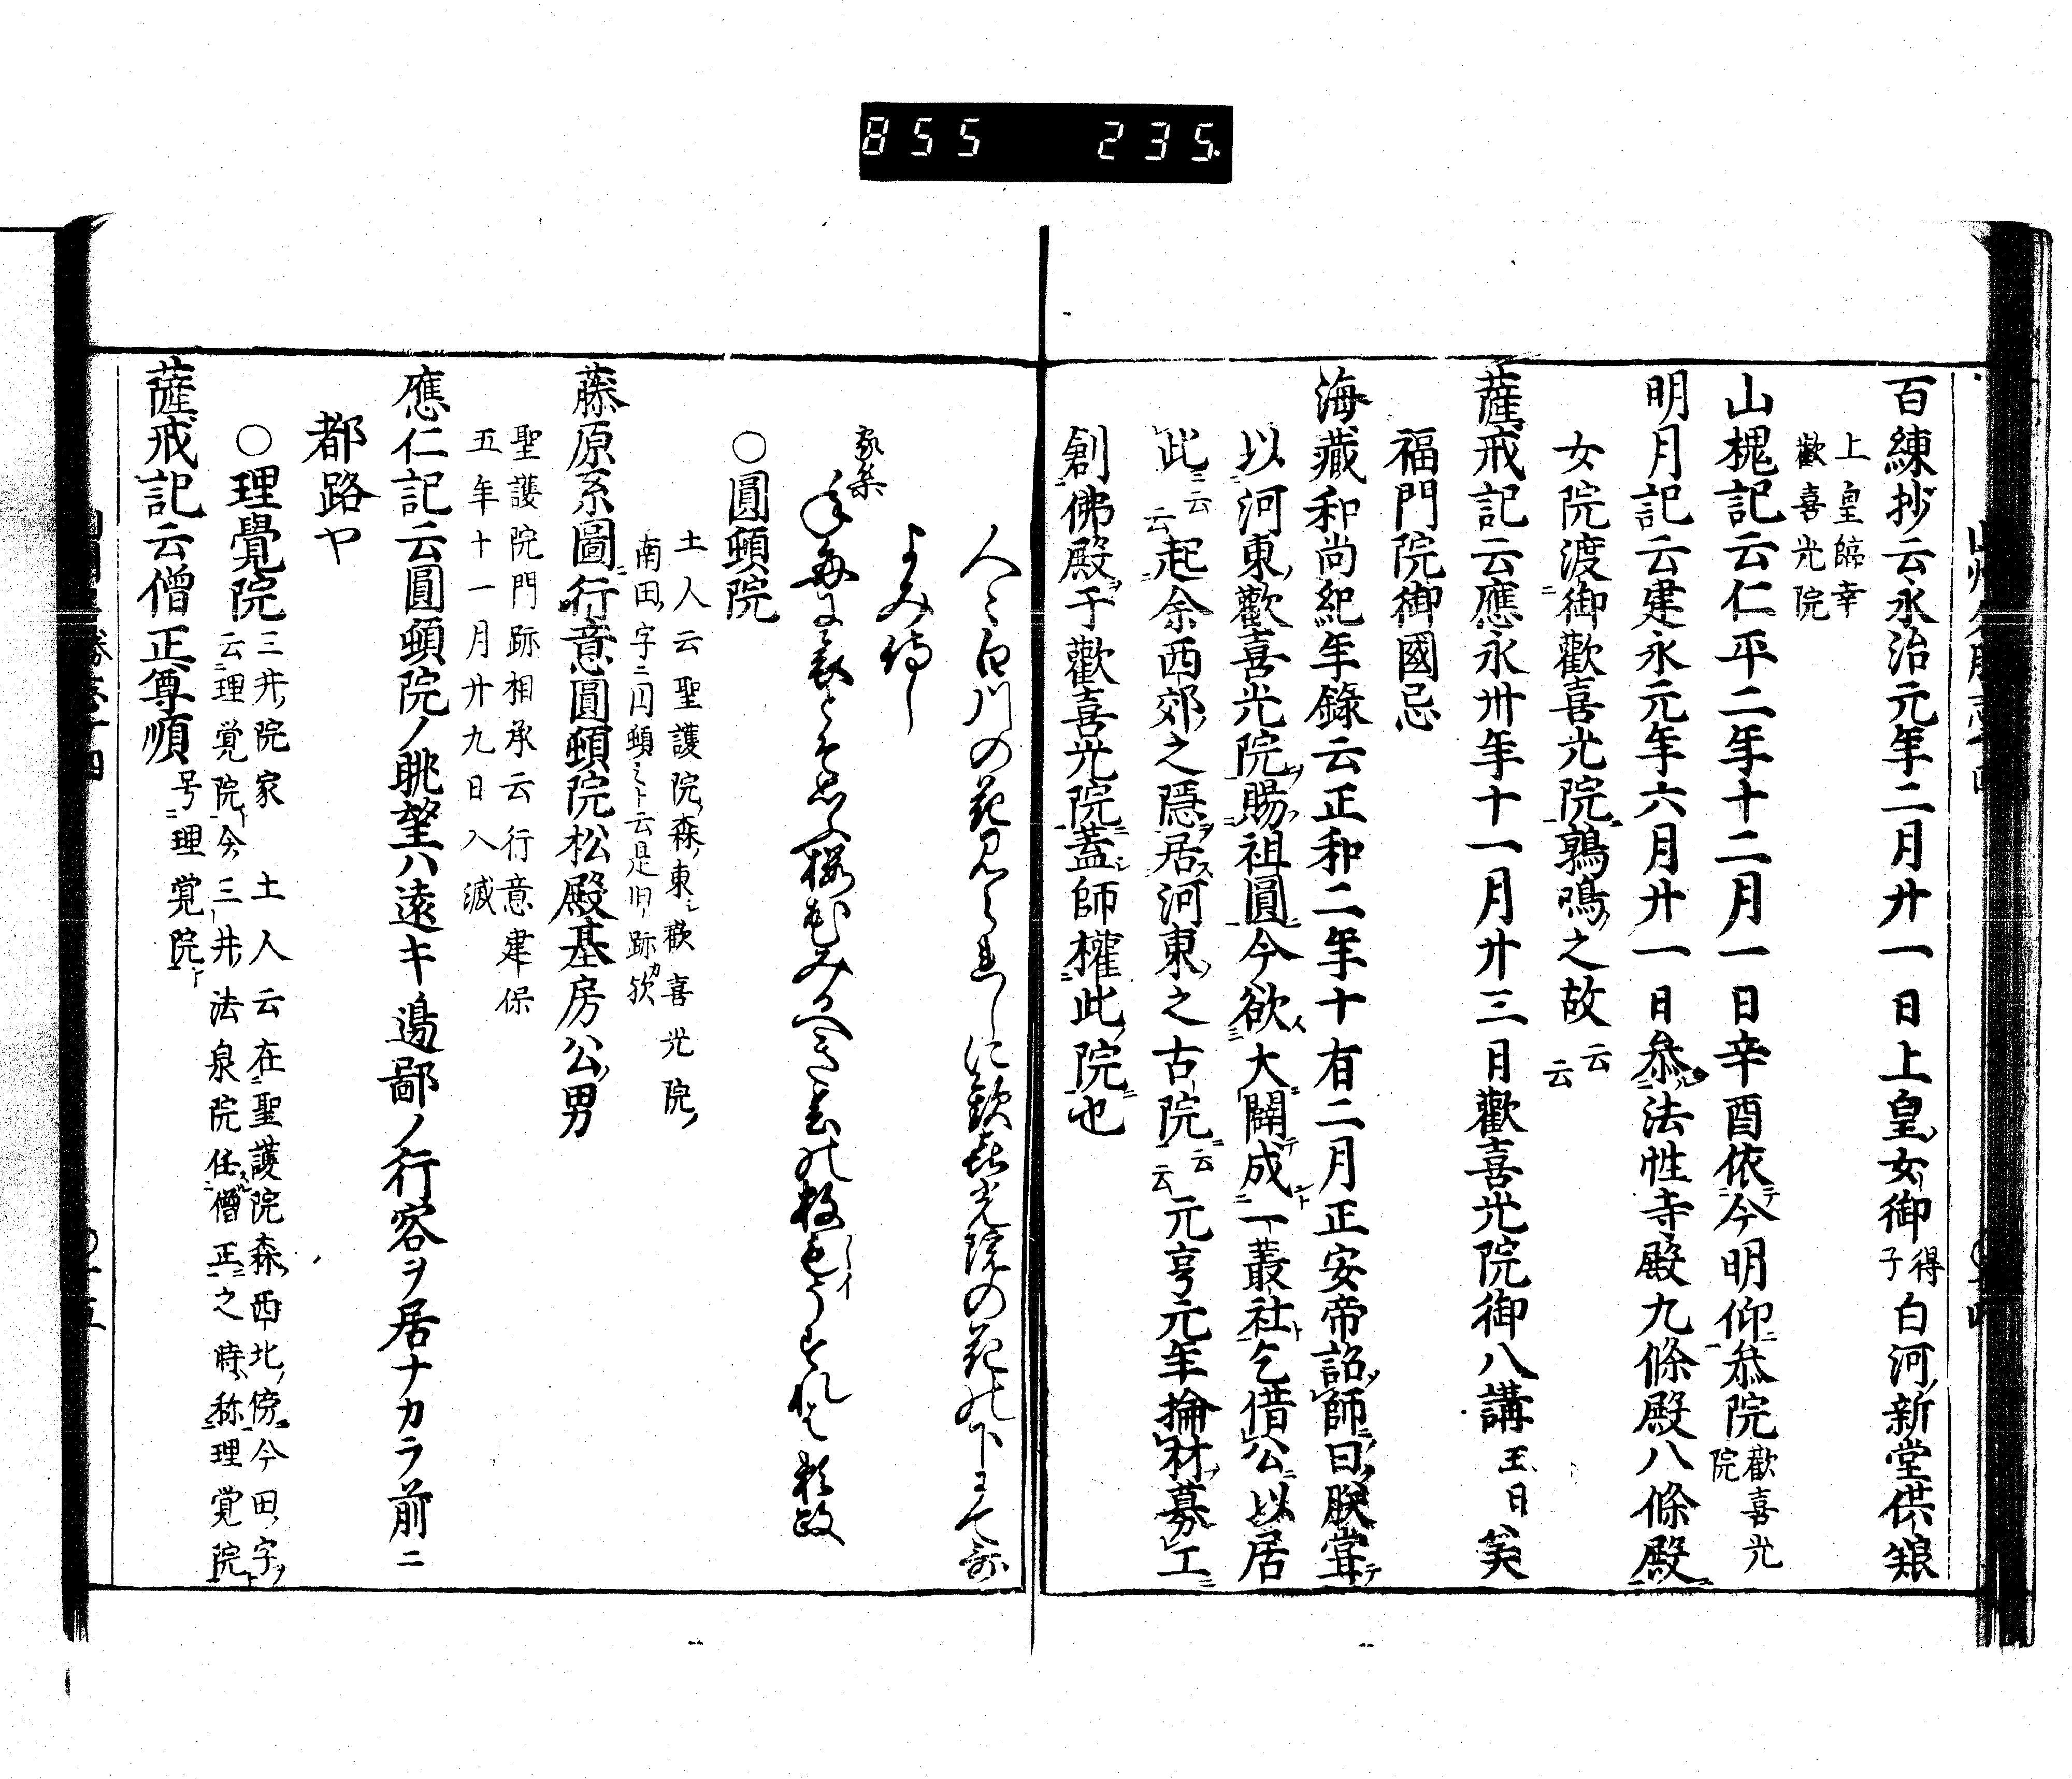 855 235
百練抄云永治元年二月廿一日上皇女御得子白河新堂供娘
上皇臨幸
歡喜光院
山槐記云仁平二年十二月一日辛酉依今明仰叅院歡喜光院
明月記云建永元年六月廿一日叅法性寺殿九條殿八條殿
女院渡御歡喜光院鶉鳴之故云云
薩戒記云應永卅年十一月廿三日歡喜光院御八講
福門院御國忌
海藏和尚紀年錄云正和二年十有二月正安帝詔師曰朕嘗
以河東歡喜光院賜祖圓今欲大闢成一叢社乞借公以居
此云云起余西郊之隱居河東之古院云云元亨元年掄材募工
創佛殿于歡喜光院蓋師權此院也
人〻白川の花見られしに歓喜光院の花の下にて哥
よみ侍し
家集
○圓頓院
土人云聖護院森東歡喜光院
南田字ニ囚頓ミト云是旧跡カ欤
藤原系圖行意圓頓院松殿基房公男
聖護院門跡相承云行意建保
五年十一月廿九日入滅
應仁記云圓頓院ノ眺望ハ遠キ邉鄙ノ行容ヲ居ナカラ前ニ
都路ヤ
○理覺院三井院家 土人云在聖護院森西北傍今田字
云理覚院今三井法泉院住僧正之時称理覚院
薩戒記云僧正尊順号理覚院